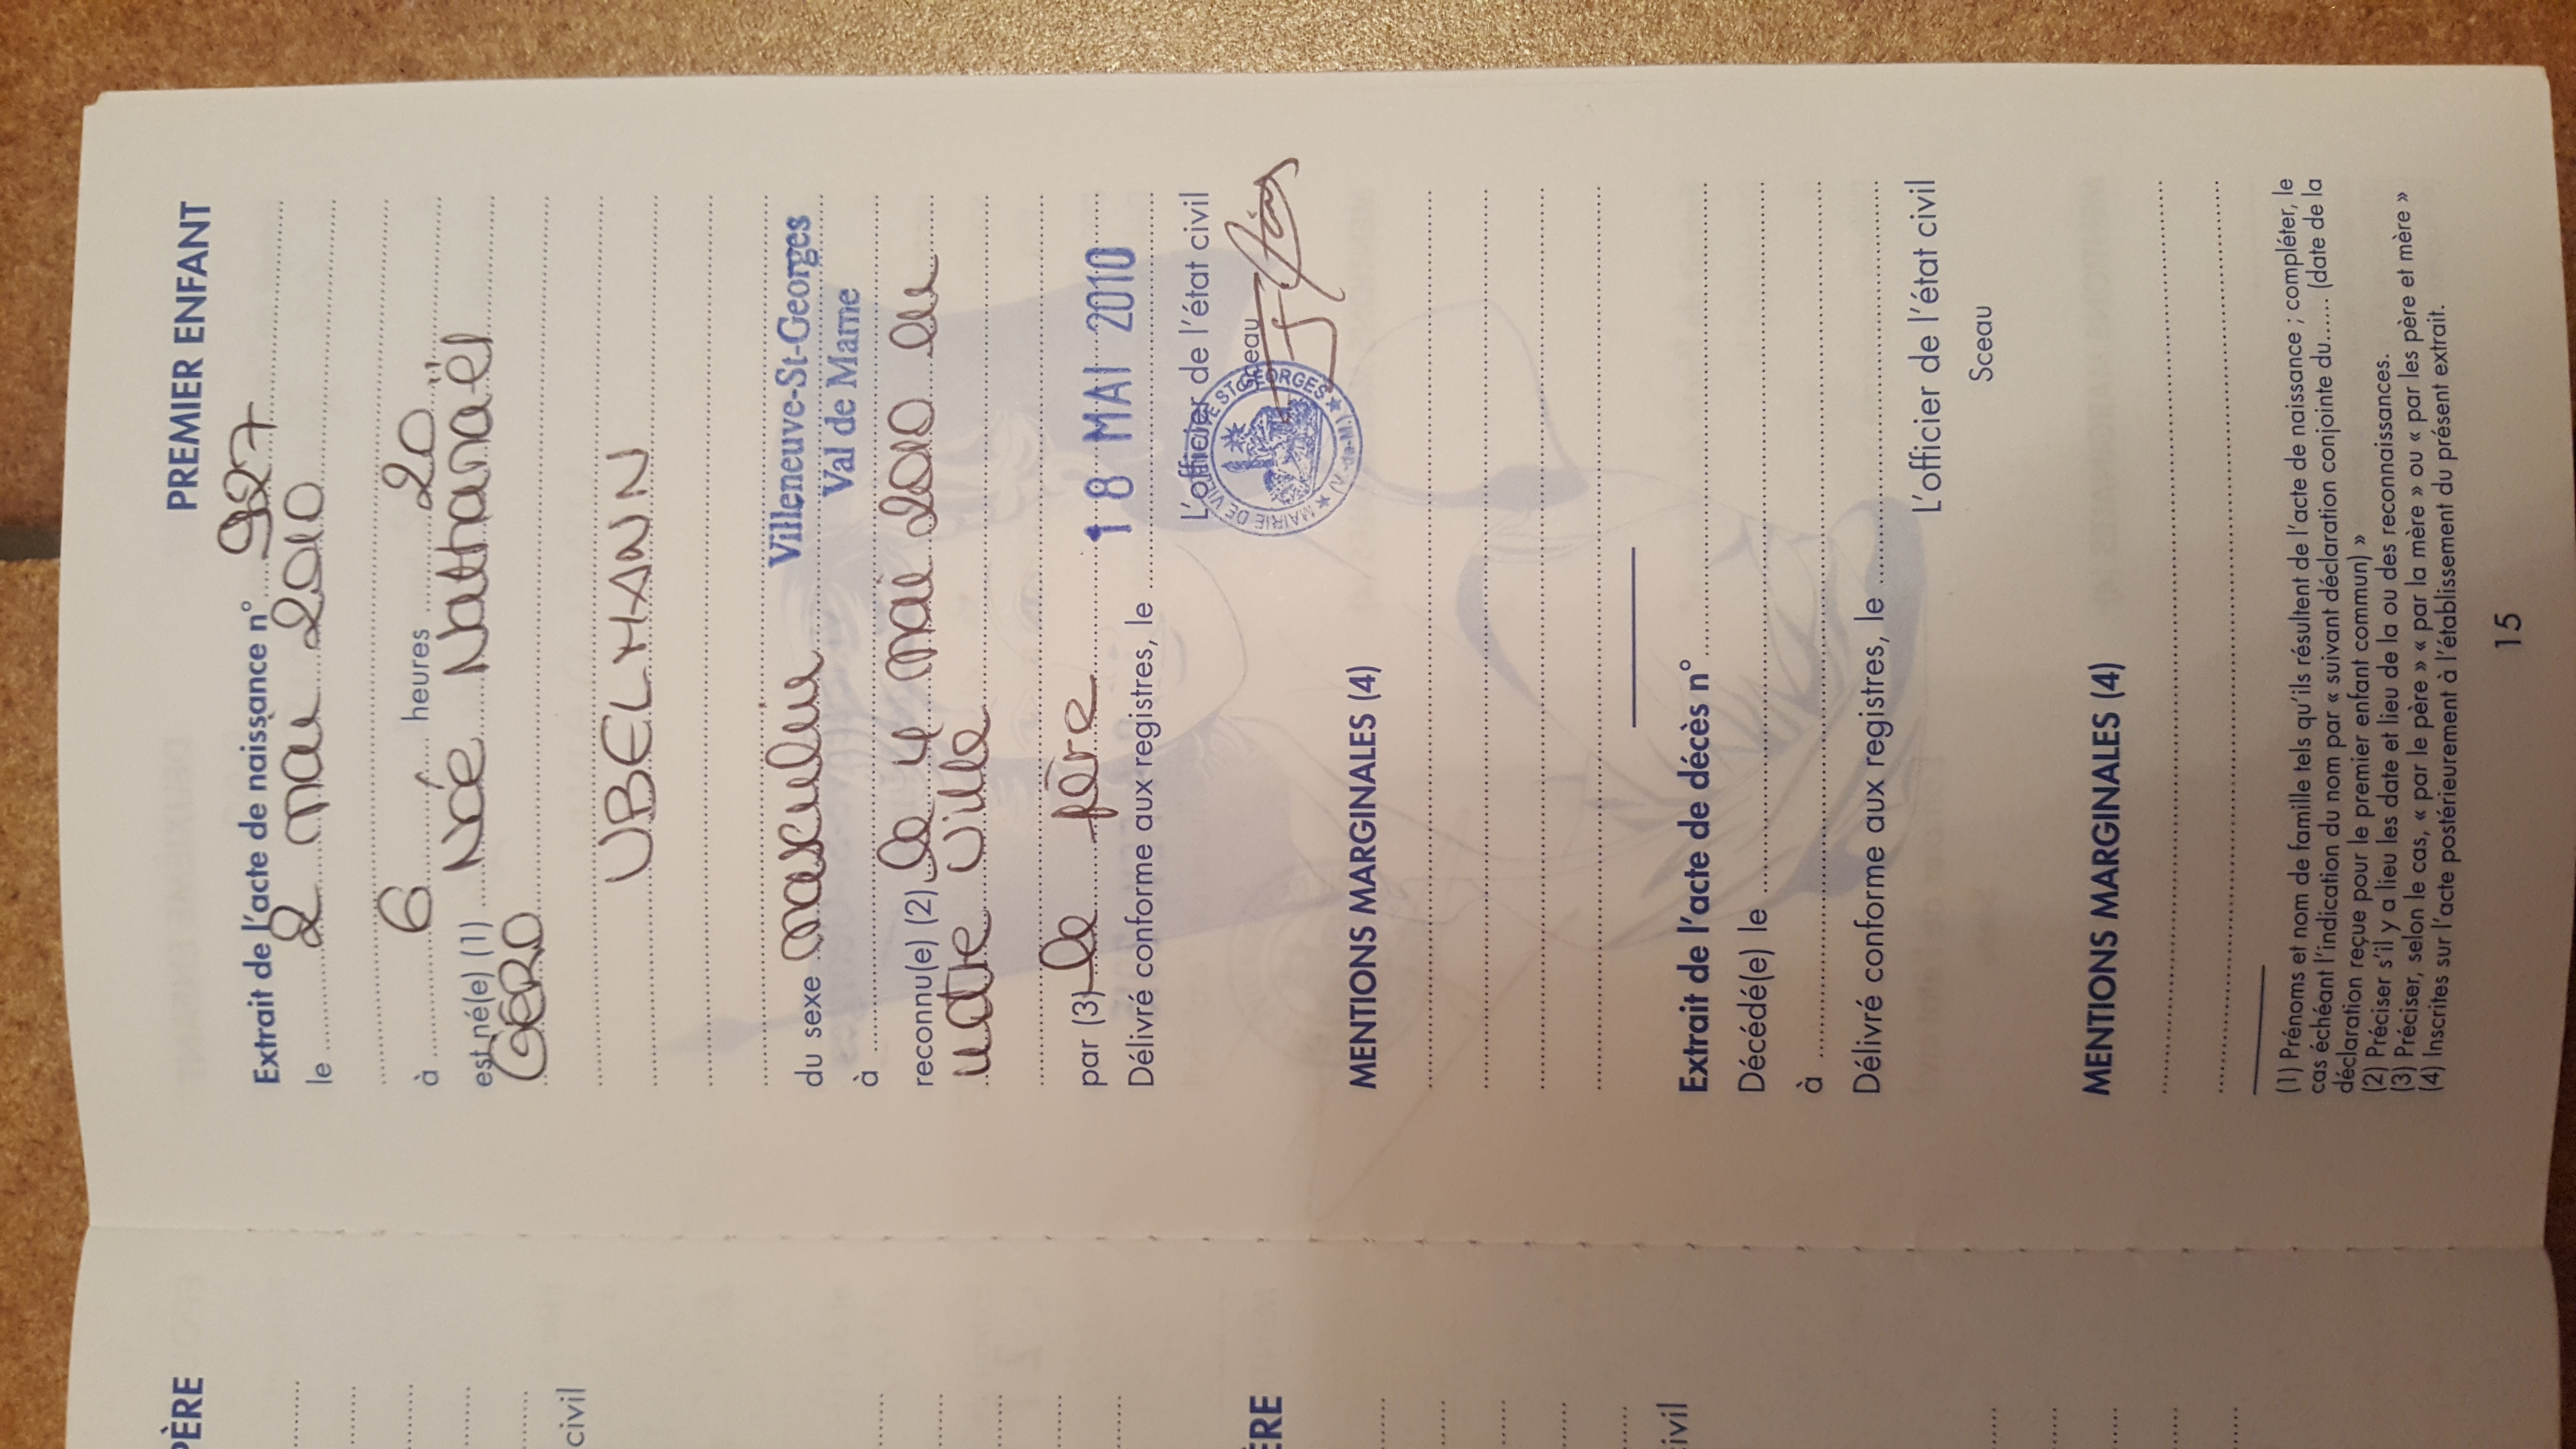 PREMIER ENFANT
Extrait de l'acte de naissance n° 927
le 2 mai 2010
à 6 heures 20
est né(e) (1) Noé Nathanaël
GERD
UBELMANN
du sexe masculin Villeneuve-St-Georges
à Val de Marne
reconnu(e) (2) le 4 mai 2010 en
notre ville
par (3) le père
Délivré conforme aux registres, le 18 MAI 2010
L'officier de l'état civil
Sceau
MAIRIE DE VILLENEUVE ST GEORGES (V.-de-M.)
MENTIONS MARGINALES (4)
Extrait de l'acte de décès n°
Décédé(e) le
à
Délivré conforme aux registres, le
L'officier de l'état civil
Sceau
MENTIONS MARGINALES (4)
(1) Prénoms et nom de famille tels qu'ils résultent de l'acte de naissance ; compléter, le
cas échéant l'indication du nom par « suivant déclaration conjointe du...... (date de la
déclaration reçue pour le premier enfant commun) »
(2) Préciser s'il y a lieu les date et lieu de la ou des reconnaissances.
(3) Préciser, selon le cas, « par le père » « par la mère » ou « par les père et mère »
(4) Inscrites sur l'acte postérieurement à l'établissement du présent extrait.
15
PÈRE
civil
ÈRE
ivil